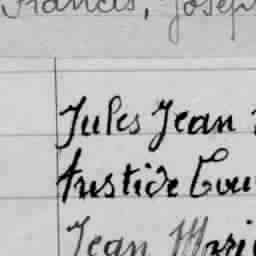 Francis, Joseph
Jules Jean
Aristide Lou
Jean Mari